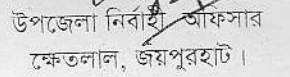 উপজেলা নির্বাহী অফিসার
ক্ষেতলাল, জয়পুরহাট।